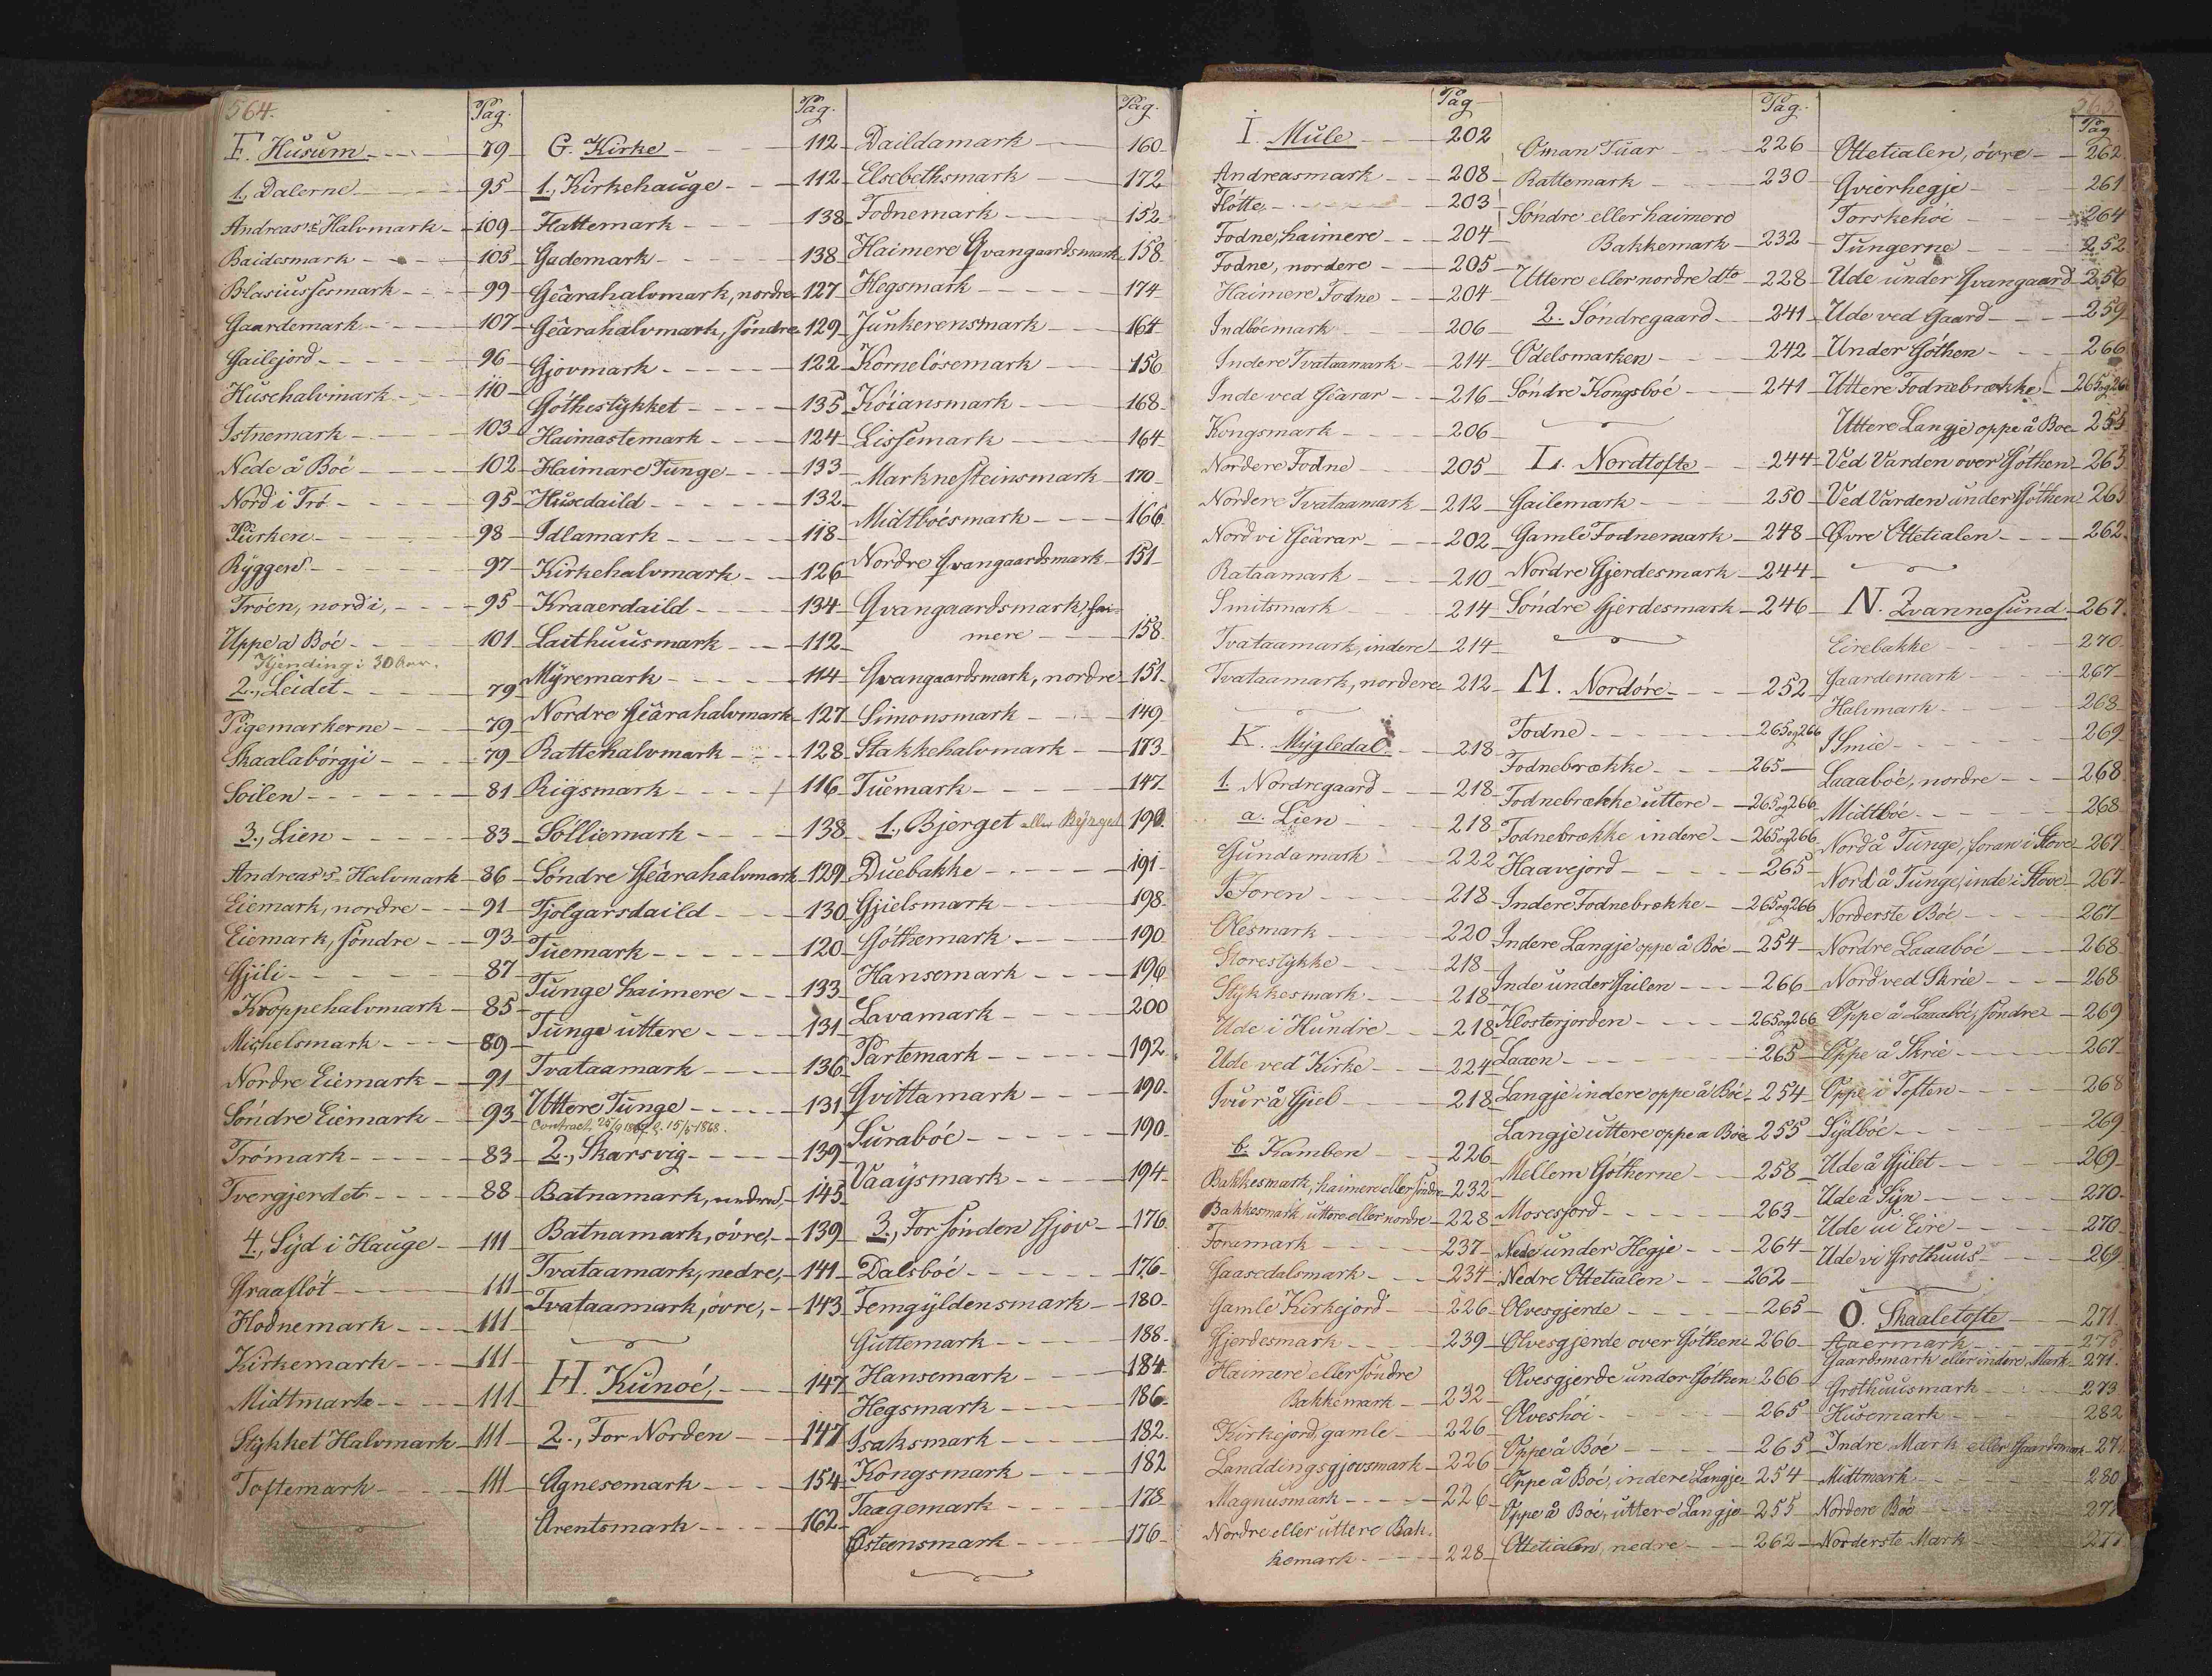 564.
Pag.
F. Husum 79
1., Dalerne 95
Andreas's Halvmark 109
Baidesmark 105
Blasiussesmark 99
Gaardemark 107
Gailejord 96
Husehalvmark 110
Istnemark 103
Nede å Boé 102
Nord i Tró 95
Purken 98
Ryggen 97
Tróen, nord i, 95
Uppe a Boé 101
Kjending i 30 Aar.
2., Leidet 79
Pigemarkerne 79
Skaalabórgji 79
Soilen 81
3., Lien 83
Andreas's Halvmark 86
Eiemark, nordre 91
Eiemark, Sóndre 93
Gjili 87
Kroppehalvmark 85
Michelsmark 89
Nordre Eiemark 91
Sóndre Eiemark 93
Trómark 83
Tvergjerdet 88
4., Syd i Hauge 111
Graaflót 111
Hodnemark 111
Kirkemark 111
Midtmark 111
Stykket Halvmark 111
Toftemark 111
Pag.
G. Kirke 112
1., Kirkehauge 112
Flattemark 138
Gademark 138
Geârahalvmark, nordre 127
Geârahalvmark, Sóndre 129
Gjovmark 122
Góthestykket 135
Haimastemark 124
Haimare Tunge 133
Husedaild 132
Idlamark 118
Kirkehalvmark 126
Kraaerdaild 134
Laithuusmark 112
Myremark 114
Nordre Geârahalvmark 127
Rattehalvmark 128
Rigsmark 116
Sólliemark 138
Sóndre Geârahalvmark 129
Tjolgarsdaild 130
Tuemark 120
Tunge haimere 133
Tunge uttere 131
Tvataamark 136
Uttere Tunge 131
2., Skarsvig 139
Batnamark, nedre, 145
Batnamark, óvre, 139
Tvataamark, nedre, 141
Tvataamark, óvre, 143
H. Kunoé, 147
2., For Norden 147
Agnesemark 154
Arentsmark 162
Pag.
Daildamark 160
Elsebethsmark 172
Fodnemark 152
Haimere Qvangaardsmark 158
Hegsmark 174
Junkerensmark 164
Kornelósemark 156
Kóiansmark 168
Lissemark 164
Marknesteinsmark 170
Midtboésmark 166
Nordre Qvangaardsmark 151
Qvangaardsmark, hai-
mere 158
Qvangaardsmark, nordre 151
Simonsmark 149
Stakkehalvmark 173
Tuemark 147
1., Bjerget eller Byrget 190
Duebakke 191
Gjielsmark 198
Gothemark 190
Hansemark 196
Lavamark 200
Partemark 192
Qvittamark 190
Suraboé 190
Vaaysmark 194
3., For Sónden Gjov 176
Dalsboé 176
Femgyldensmark 180
Guttemark 188
Hansemark 184
Hegsmark 186
Isaksmark 182
Kongsmark 182
Taagemark 178
Østeensmark 176
Pag
I. Mule 202
Andreasmark 208
Flótte 203
Fodne, haimere 204
Fodne, nordere 205
Haimere Fodne 204
Indboémark 206
Indere Tvataamark 214
Inde ved Geârar 216
Kongsmark 206
Nordere Fodne 205
Nordere Tvataamark 212
Nord vi Geârar 202
Rataamark 210
Smitsmark 214
Tvataamark, indere 214
Tvataamark, nordere 212
K. Mygledal 218
1. Nordregaard 218
a. Lien 218
Gundamark 222
I Foren 218
Olesmark 220
Storestykke 218
Stykkesmark 218
Ude i Hundre 218
Ude ved Kirke 224
Ivur å Gjel 218
b. Kamben 226
Bakkesmark, haimere eller Sóndre 232
Bakkesmark, uttere eller nordre 228
Foramark 237
Gaasedalsmark 234
Gamle Kirkejord 226
Gjerdesmark 239
Haimere eller Sóndre
Bakkemark 232
Kirkejord, gamle 226
Landdingsgjovsmark 226
Magnusmark 226
Nordre eller uttere Bak-
kemark 228
Pag.
Oman Tuar 226
Rattemark 230
Sóndre eller haimere
Bakkemark 232
Uttere eller nordre dto 228
2. Sóndregaard 241
Odelsmarken 242
Sóndre Kongsboé 241
L. Nordtofte 244
Gailemark 250
Gamle Fodnemark 248
Nordre Gjerdesmark 244
Sóndre Gjerdesmark 246
M. Nordóre 252
Fodne 265 og 266
Fodnebrække 265
Fodnebrække uttere 265 og 266
Fodnebrække indere 265 og 266
Haavejord 265
Indere Fodnebrække 265 og 266
Indere Langje oppe å Boé 254
Inde under Gailen 266
Klosterjorden 265 og 266
Laaen 265
Langje indere oppe å Boé 254
Langje uttere oppe a Boé 255
Mellem Gótherne 258
Mosesjord 263
Nede under Hegje 264
Nedre Ottetialen 262
Olvesgjerde 265
Olvesgjerde over Góthen 266
Olvesgjerde under Góthen 266
Olveshói 265
Oppe å Boé 265
Oppe å Boé, indere Langje 254
Oppe å Boé, uttere Langje 255
Ottetialen, nedre 262
Pag
Ottetialen, óvre 262
Qvierhegje 261
Torskehói 264
Tungerne 252
Ude under Qvangaard 256
Ude ved Gaard 259
Under Góthen 266
Uttere Fodnebrække
Uttere Langje oppe å Boe 255
Ved Varden over Góthen 265
Ved Varden under Góthen 265
Øvre Ottetialen 262
N. Qvannesund 267
Eirebakke 270
Gaardemark 267
Halvmark 268
I Smie 269
Laaaboé, nordre 268
Midtboé 268
Nord å Tunge, foran i Stove 267
Nord å Tunge, inde i Stove 267
Norderste Boé 267
Nordre Laaaboé 268
Nord ved Skrie 268
Oppe å Laaaboé, Sóndre 269
Oppe å Skrie 267
Oppe i Toften 268
Sydboé 269
Ude å Gjilet 269
Ude å Syn 270
Ude ui Eire 270
Ude vi Grothuus 269
O. Skaaletofte 271
Aaermark
Gaardsmark eller indere Mark 271.
Grothuusmark 273
Husemark 282
Indre Mark eller Gaardsmark
Midtmark 280
Nordere Boé
Norderste Mark 277